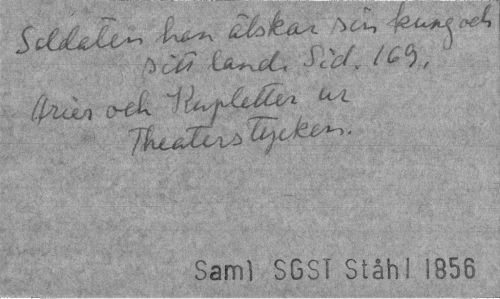 Soldaten han älskar sin kung och
sitt land. Sid. 169.
Arier och Kupletter ur
Theaterstycken.
Saml SGST Ståhl 1856